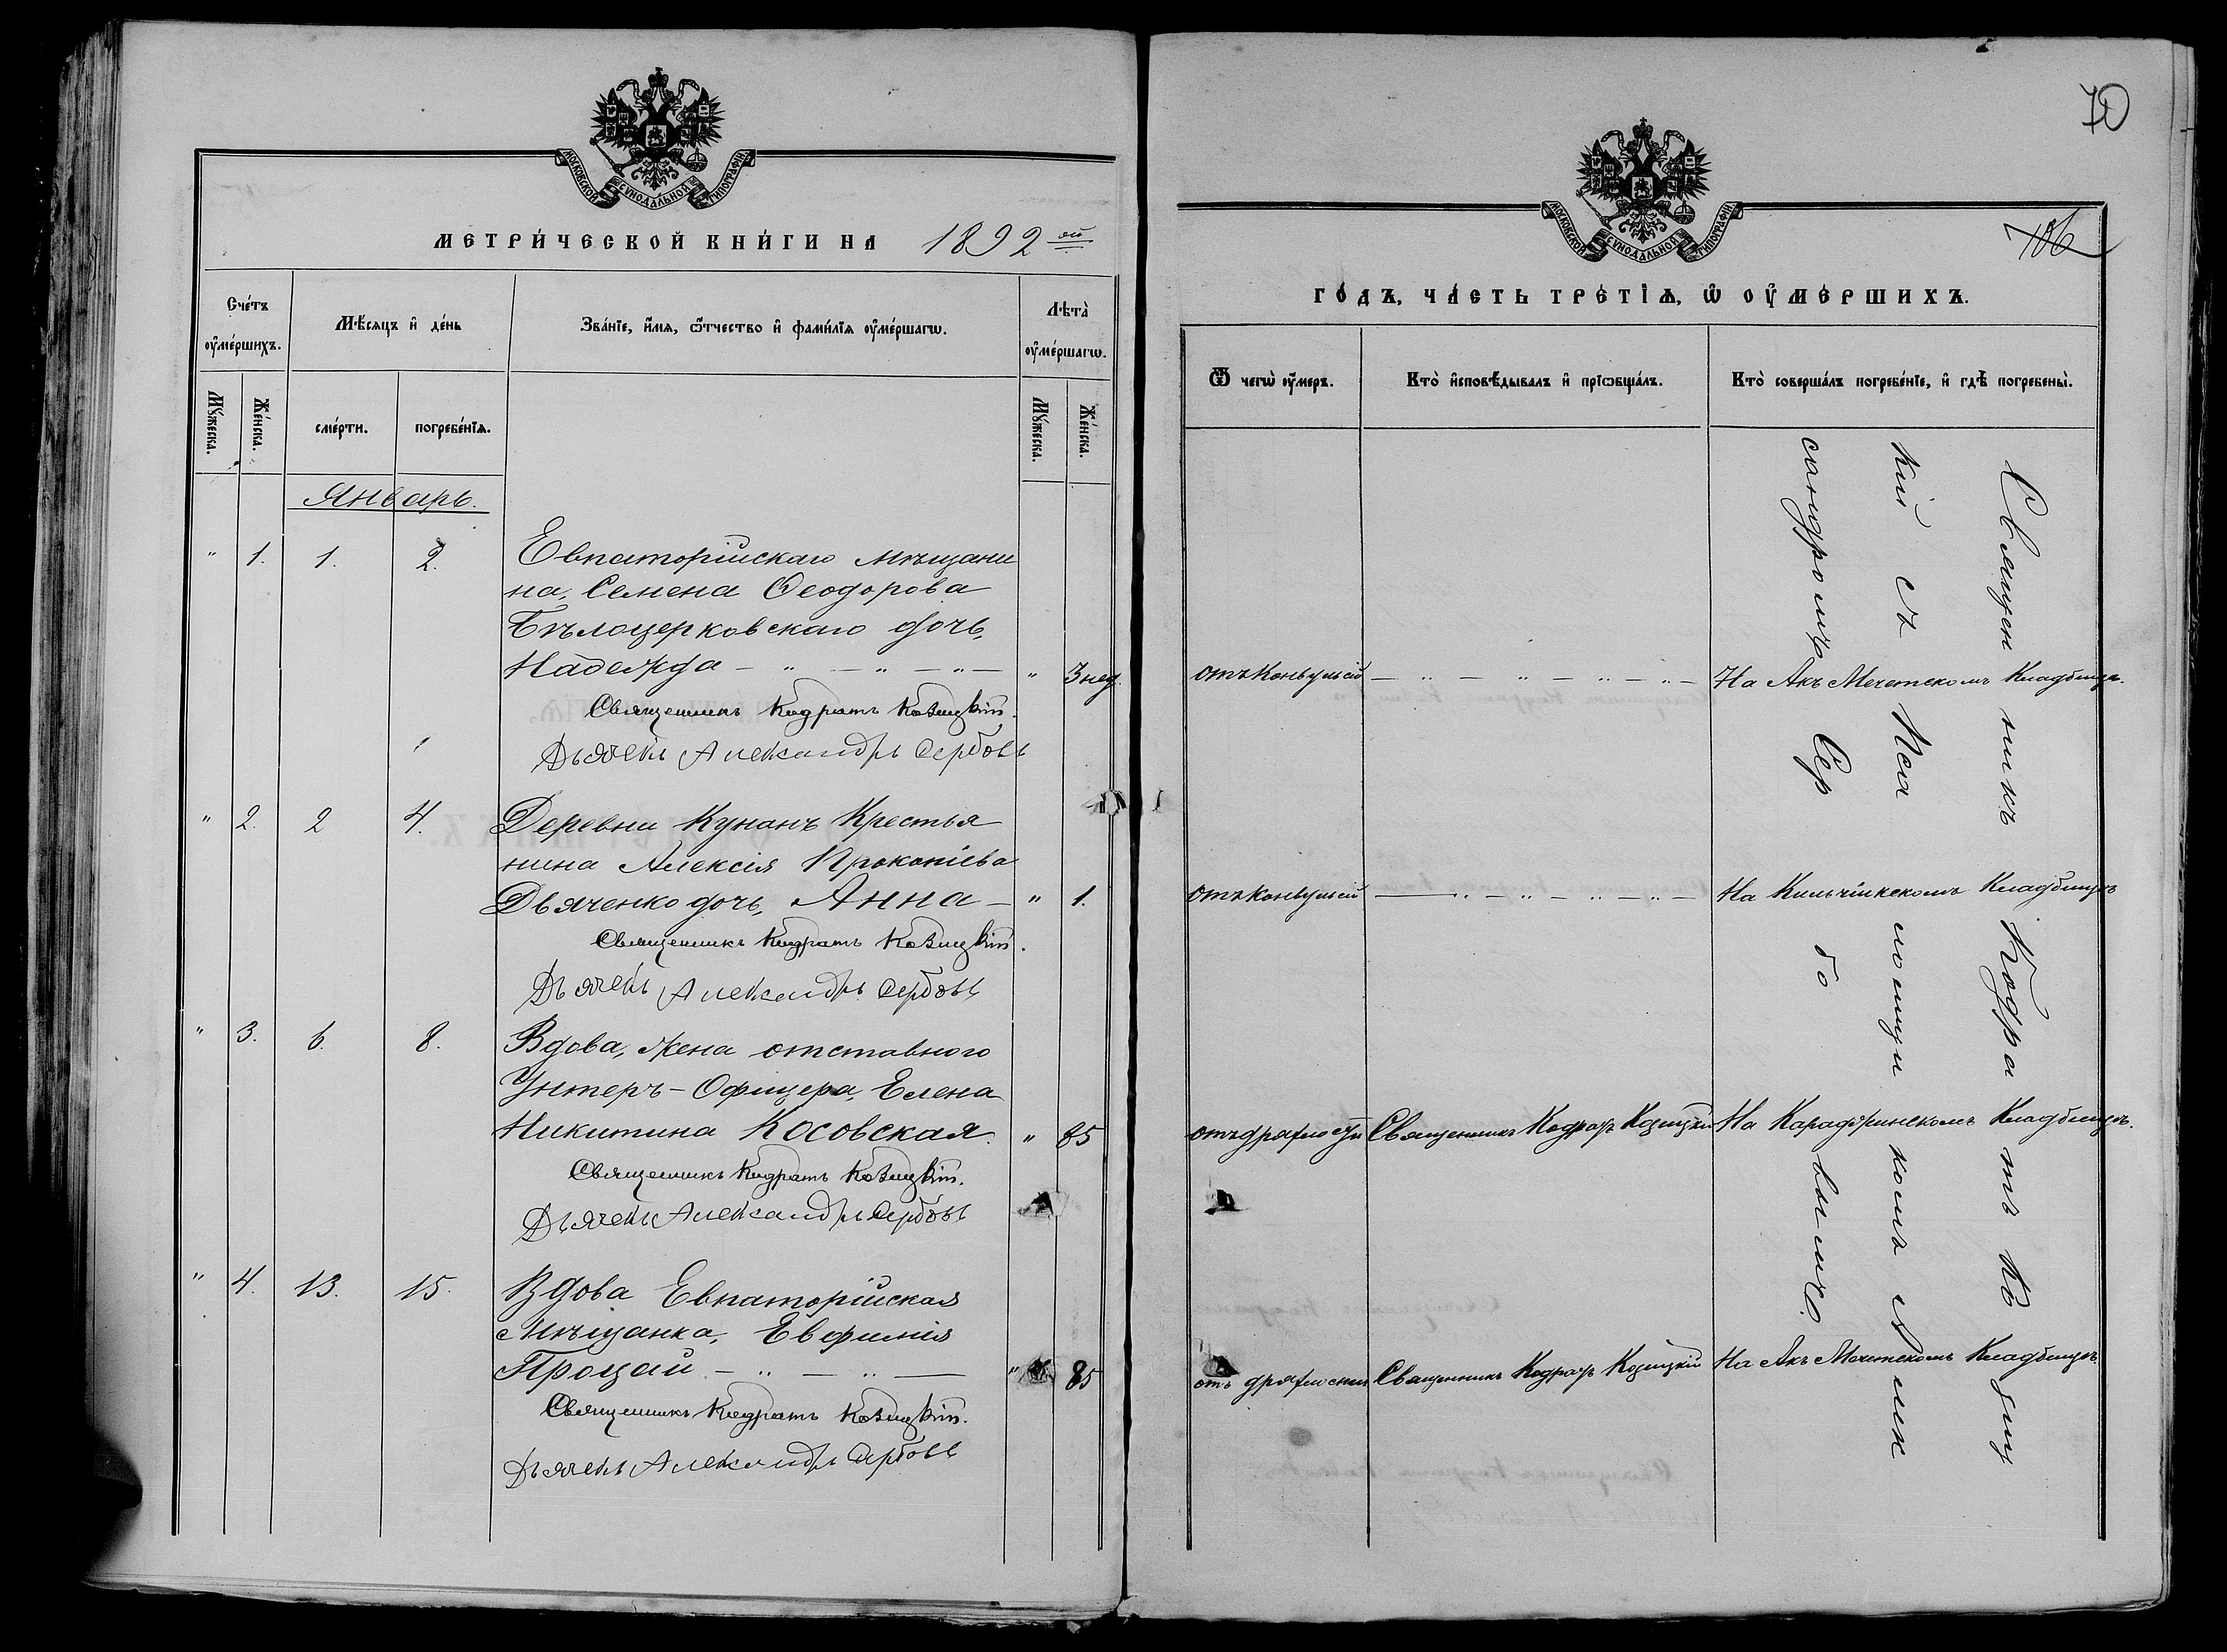 МОСКОВСКОЙ СѴНОДАЛЬНОЙ ТИПОГРАФІИ
МЕТРИ́ЧЕСКОЙ КНИ́ГИ НА 1892 ой
Сче́тъ ᲂу҆ме́ршихъ.
Мѣ́сяцъ и҆ де́нь
Зва́нїе, и҆́мя, ѻ҆́тчество и҆ фами́лїя ᲂу҆ме́ршагѡ.
Лѣ́та ᲂу҆ме́ршагѡ.
Мꙋ́жеска.
Же́нска.
сме́рти.
погребе́нїя.
Мꙋ́жеска.
Же́нска.
Январь.
" 1. 1. 2. Евпаторійскаго мѣщани
на, Семена Ѳеодорова
Бѣлоцерковскаго дочь,
Надежда — " — " — " — " 3 нед.
Священникъ Кодратъ Козицкій.
Дьячекъ Александръ Сербовъ
" 2. 2 4. Деревни Кунанъ Крестья
нина Алексія Прокопіева
Дьяченко дочь, Анна — " 1.
Священникъ Кодратъ Козицкій.
Дьячекъ Александръ Сербовъ
" 3. 6. 8. Вдова, жена отставного
Унтеръ-Офицера, Елена
Никитина Косовская. " 85
Священникъ Кодратъ Козицкій.
Дьячекъ Александръ Сербовъ
" 4. 13. 15. Вдова Евпаторійская
Мѣщанка, Евфимія
Процай — " — " — " 85
Священникъ Кодратъ Козицкій.
Дьячекъ Александръ Сербовъ
70
МОСКОВСКОЙ СѴНОДАЛЬНОЙ ТИПОГРАФІИ
106
ГО́ДЪ, ЧА́СТЬ ТРЕ́ТЇЯ, Ѡ҆ ОУ҆МЕ́РШИХЪ.
Ѿ чегѡ̀ ᲂу҆́меръ.
Кто̀ и҆сповѣ́дывалъ и҆ прїѡбща́лъ.
Кто̀ соверша́лъ погребе́нїе, и҆ гдѣ̀ погребены̀.
отъ конвульсій — " — " — " — " — На Акъ Мечетскомъ Кладбищѣ.
отъ конвульсій — " — " — " — " — На Кильчикскомъ Кладбищѣ
отъ дряхлости Священникъ Кодратъ Козицкій На Караджинскомъ Кладбищѣ.
отъ дряхлости Священникъ Кодратъ Козицкій На Акъ Мечетскомъ Кладбищѣ
Священникъ Кодратъ Козиц
кій съ Псаломщикомъ Алек
сандромъ Сербовымъ.